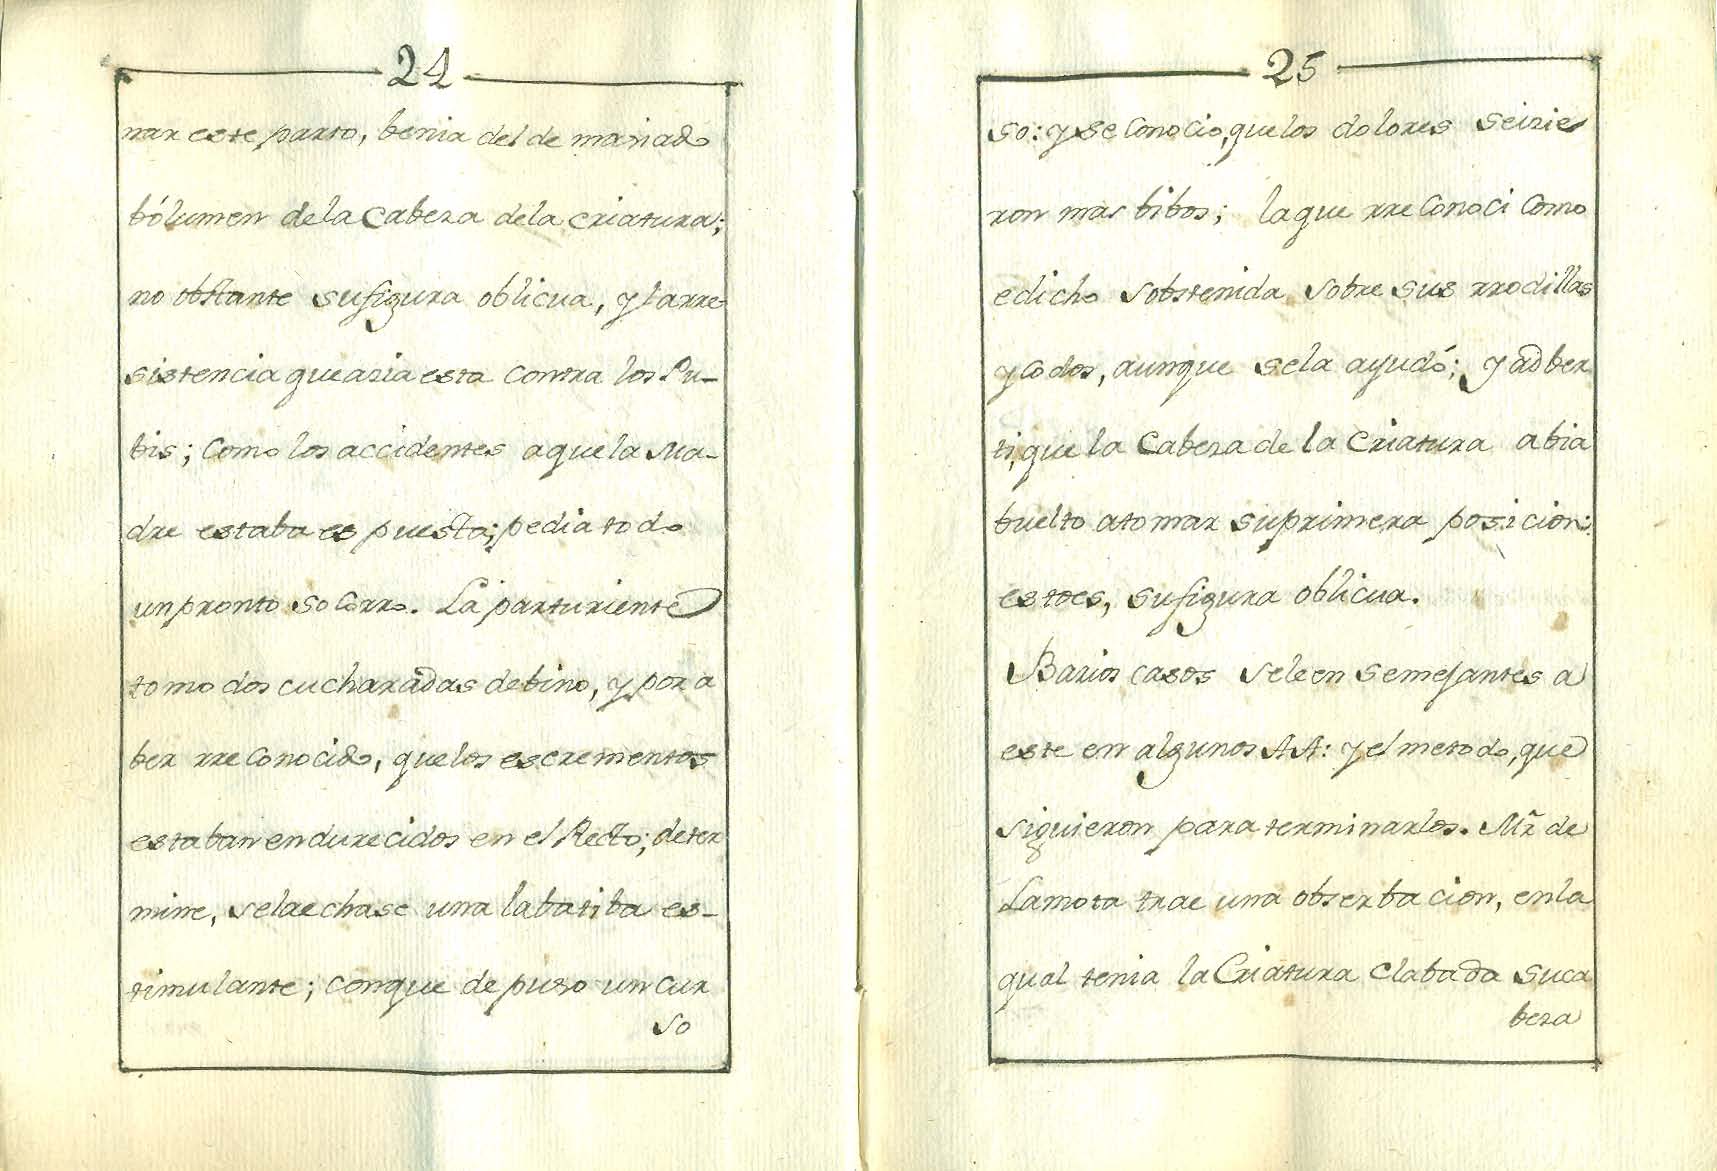 24
nar este parto, benia del demaciado
bólumen dela Cabeza dela criatura;
no obstante sufigura oblicua, y larre-
sistencia queazia esta contra los Pu-
bis; como los accidentes aquela Ma-
dre estaba espuesta; pedia todo
unpronto socorro. La parturiente
tomo dos cucharadas debino, y por a
ber rreconocido, quelos escrementos
estaban endurecidos en el Recto; deter
mine, selaechase una labatiba es-
timulante; conque depuso un cur
so
25
so: y se conocio, quelos dolores seizie
ron mas bibos; laque rreconoci como
edicho sobstenida sobre sus rrodillas
y codos, aunque sela ayudó; y adber
ti, que la Cabeza de la Criatura abia
buelto atomar suprimera posicion:
estoes, sufigura oblicua.
Barios casos seleen semejantes a
este en algunos AA: y el metodo, que
siguieron para terminarlos. Mr̃ de
Lamota trae una obserbacion, enla
qual tenia la Criatura clabada suca
beza